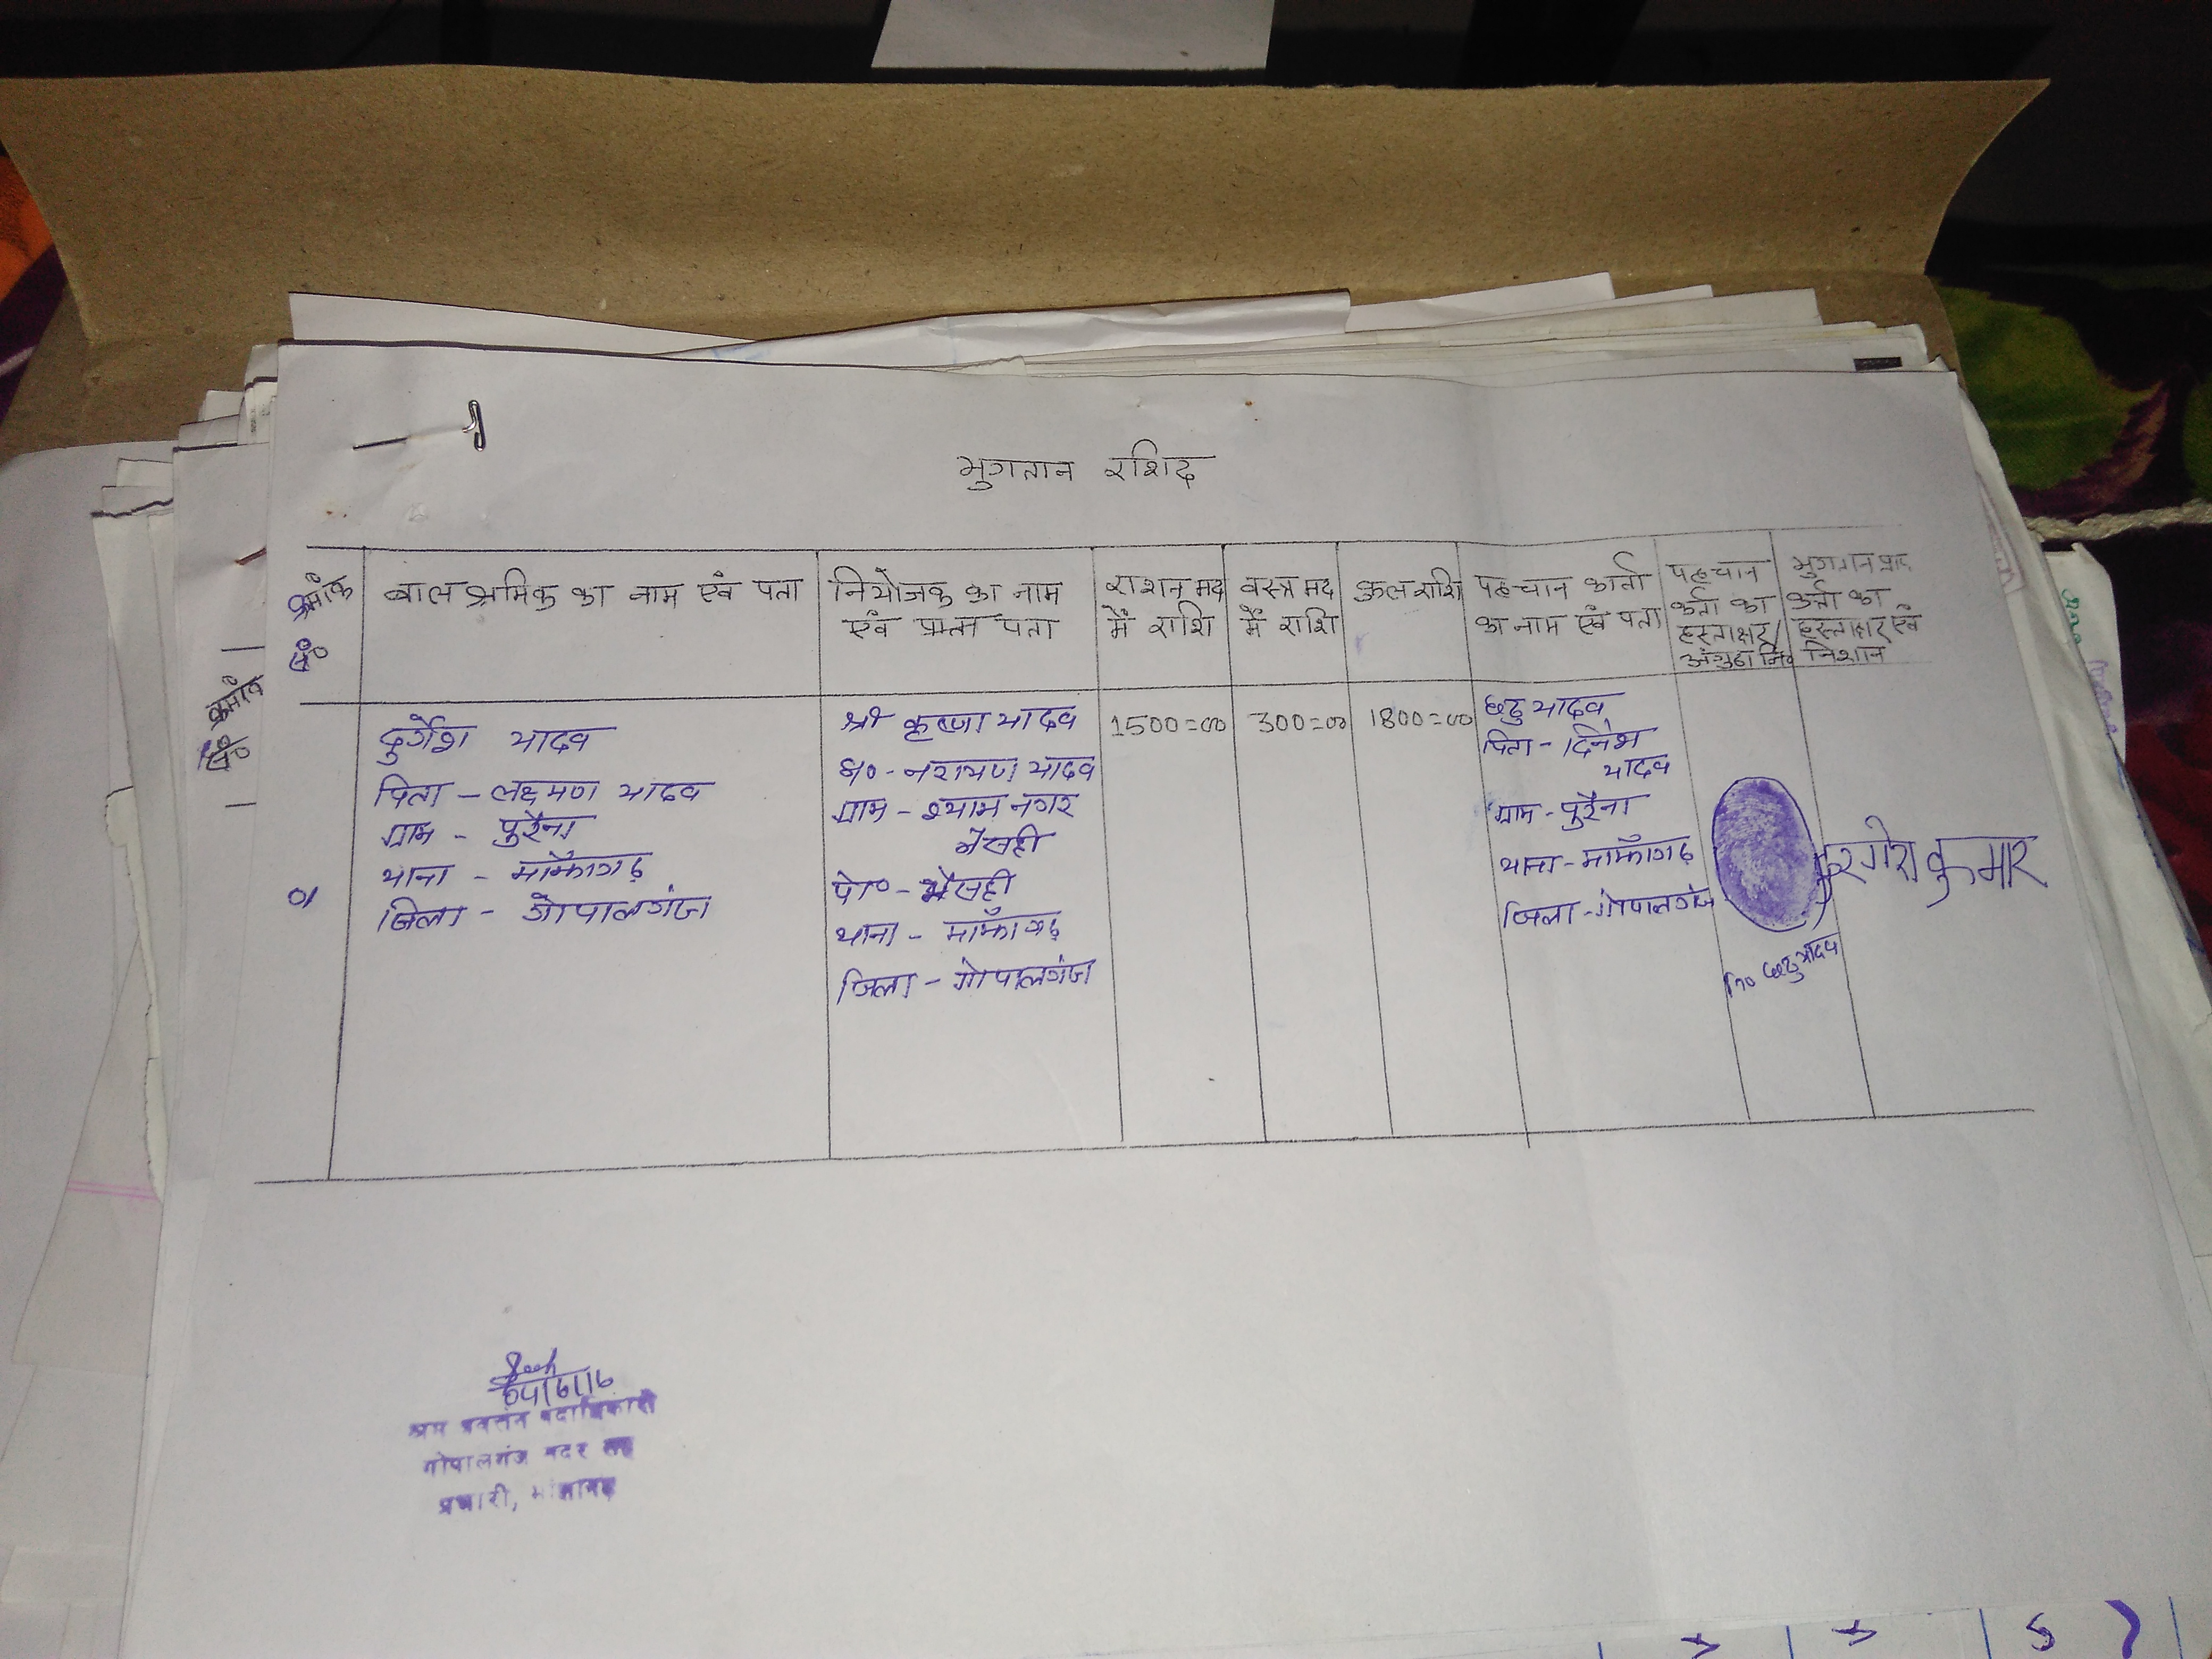 भुगतान रशिद
क्रमांक सं०
बाल श्रमिक का नाम एवं पता
नियोजक का नाम
एवं प्राप्त पता
राशन मद
में राशि
वस्त्र मद
में राशि
कुल राशि
पहचान कर्ता
का नाम एवं पता
पहचान
कर्ता का
हस्ताक्षर/
अंगुठा नि०
भुगतान प्राप्त
कर्ता का
हस्ताक्षर एवं
निशान
01
दुर्गेश यादव
पिता - लक्ष्मण यादव
ग्राम - पुरैना
थाना - माँझागढ़
जिला - गोपालगंज
श्री कृष्णा यादव
ग्राम - श्याम नगर
भैसही
पो० - भैसही
थाना - माँझागढ़
जिला - गोपालगंज
1500=00
300=00
1800=00
छठु यादव
पिता - दिनेश
यादव
ग्राम - पुरैना
थाना - माँझागढ़
जिला - गोपालगंज
नि० छठु यादव
दुरगेश कुमार
04/6/16
श्रम प्रवर्तन पदाधिकारी
गोपालगंज सदर सह
प्रभारी, माँझागढ़
क्रमांक
सं०